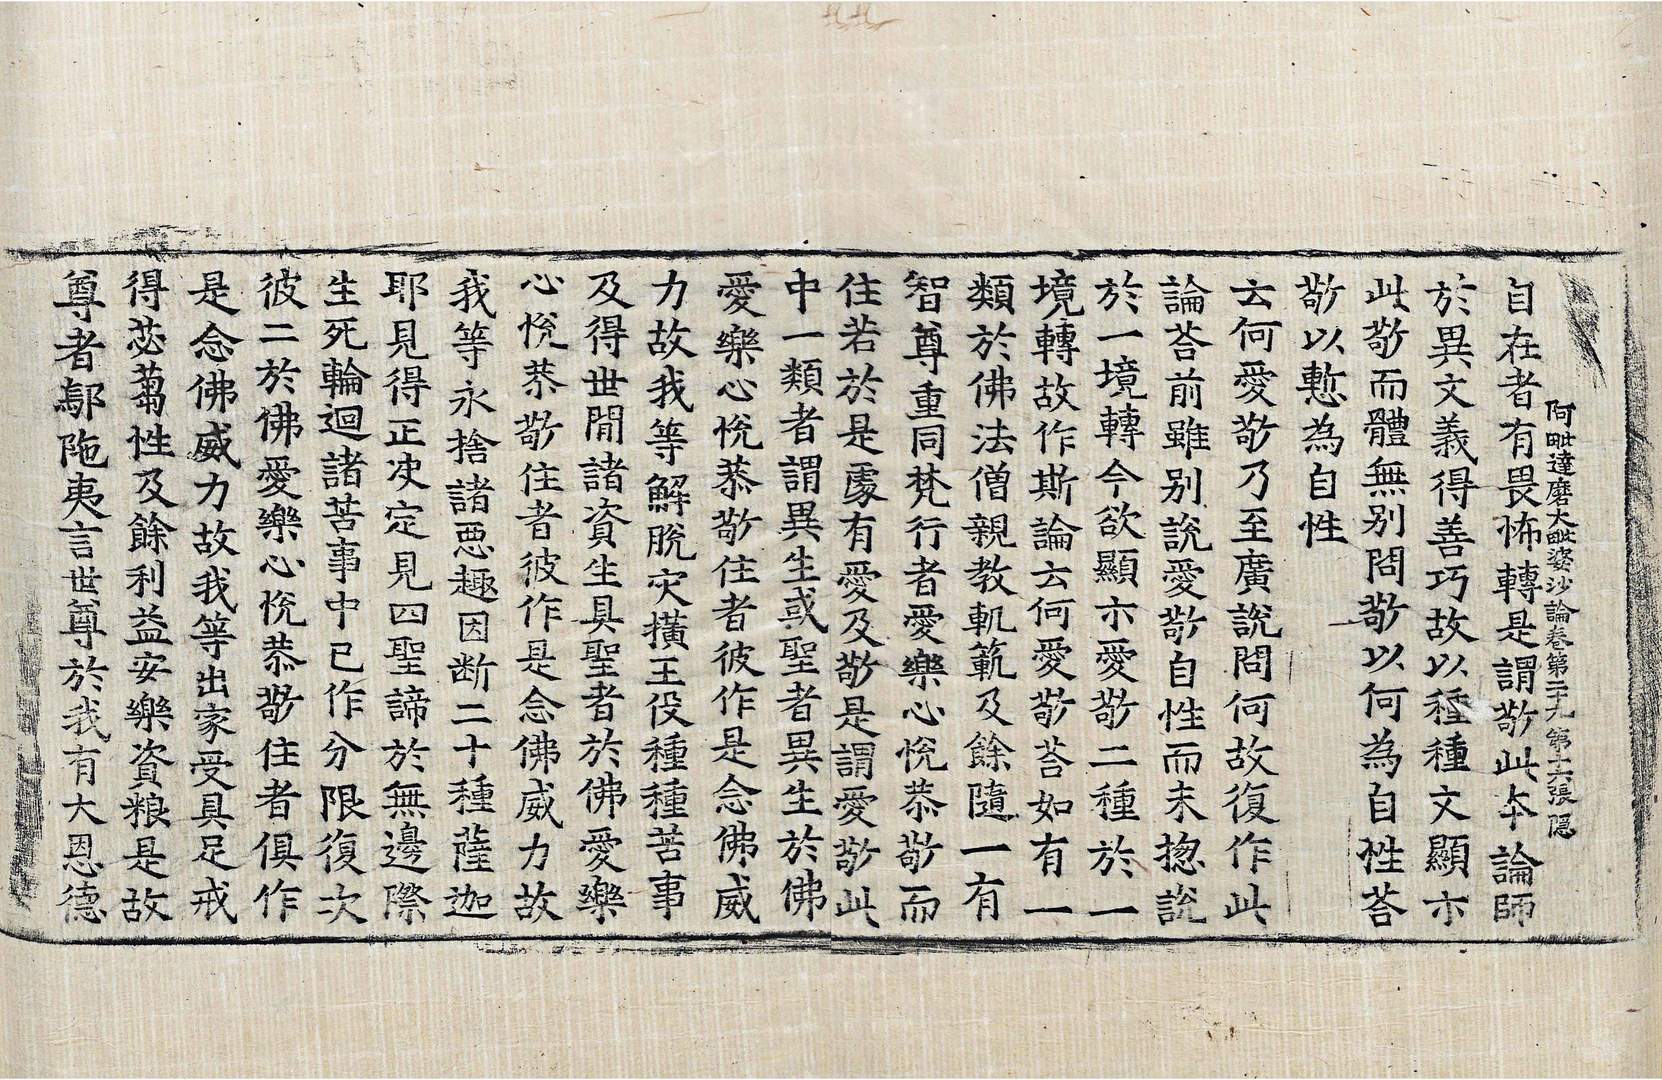 阿毗達磨大毗婆沙論卷第二十九 第十六張 隱
自在者有畏怖轉是謂敬此本論師
於異文義得善巧故以種種文顯示
此敬而體無別問敬以何為自性荅
敬以慙為自性
云何愛敬乃至廣說問何故復作此
論荅前雖別說愛敬自性而未揔說
於一境轉今欲顯示愛敬二種於一
境轉故作斯論云何愛敬荅如有一
類於佛法僧親教軌範及餘隨一有
智尊重同梵行者愛樂心恱恭敬而
住若於是處有愛及敬是謂愛敬此
中一類者謂異生或聖者異生於佛
愛樂心恱恭敬住者彼作是念佛威
力故我等解脫灾橫王役種種苦事
及得世閒諸資生具聖者於佛愛樂
心恱恭敬住者彼作是念佛威力故
我等永捨諸惡趣因断二十種薩迦
耶見得正决定見四聖諦於無邊際
生死輪迴諸苦事中已作分限復次
彼二於佛愛樂心恱恭敬住者俱作
是念佛威力故我等出家受具足戒
得苾蒭性及餘利益安樂資粮是故
尊者鄔陁夷言世尊於我有大恩德